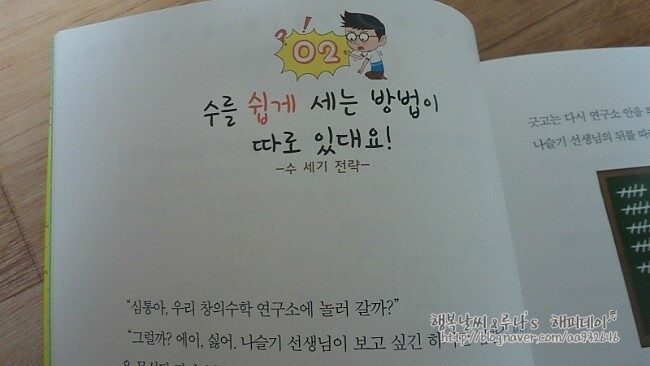 ?!
02
수를 쉽게 세는 방법이
따로 있대요!
-수 세기 전략-
"심통아, 우리 창의수학 연구소에 놀러 갈까?"
"그럴까? 에이, 싫어. 나슬기 선생님이 보고 싶긴
긋고는 다시 연구소 안을
나슬기 선생님의 뒤를
행복날씨&루나's 해피데이
http://blog.naver.com/aa932646